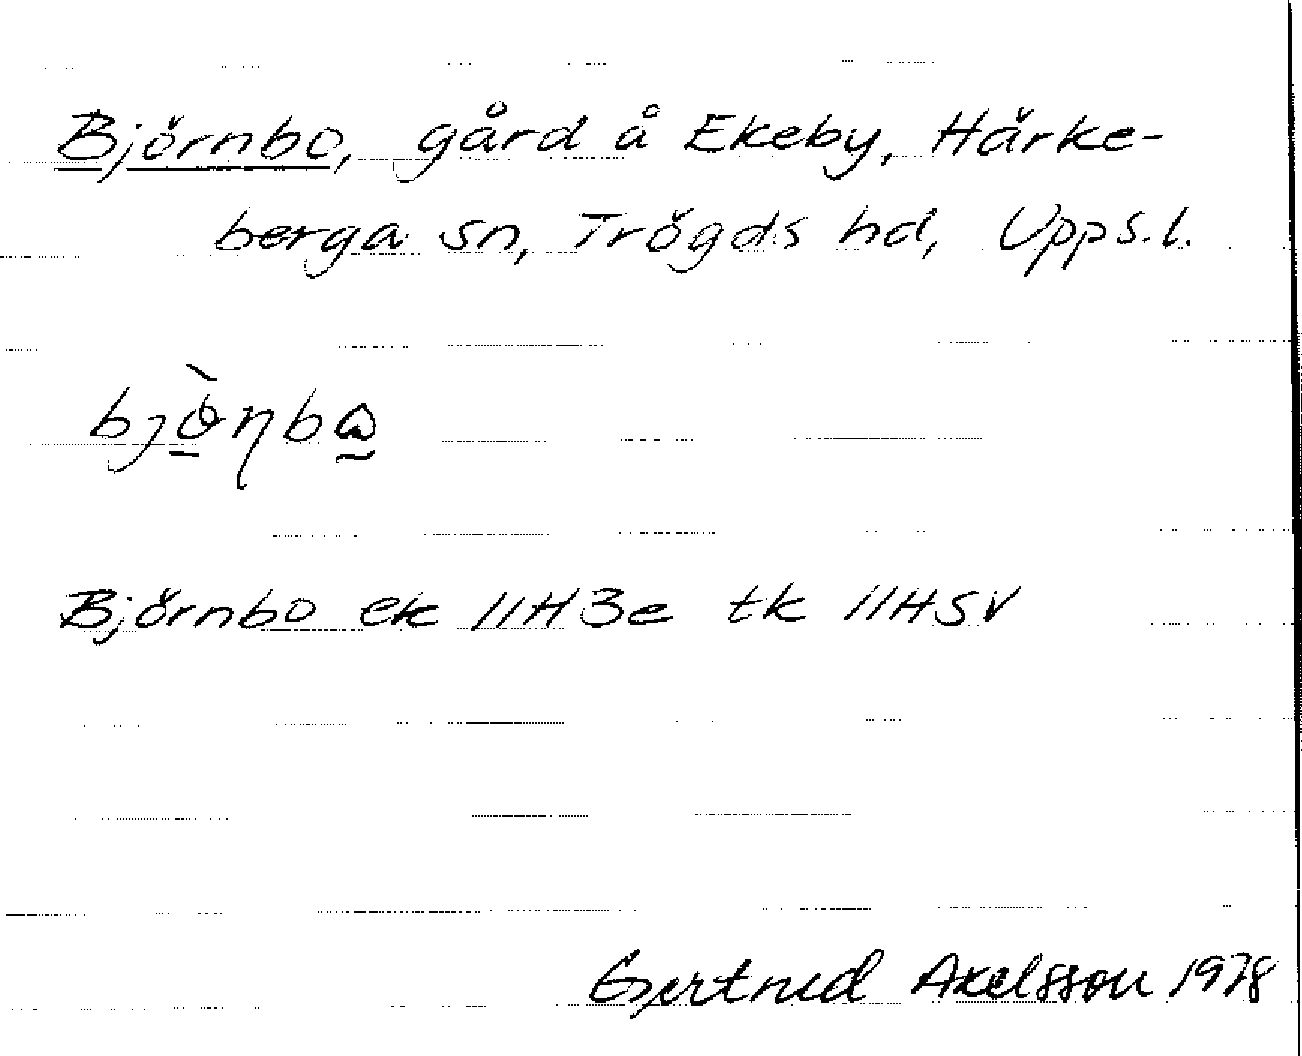 Björnbo, gård å Ekeby, Härke-
berga sn, Trögds hd, Upps.l.
Björnbo ek 11H3e tk 11HSV
Gertrud Axelsson 1978